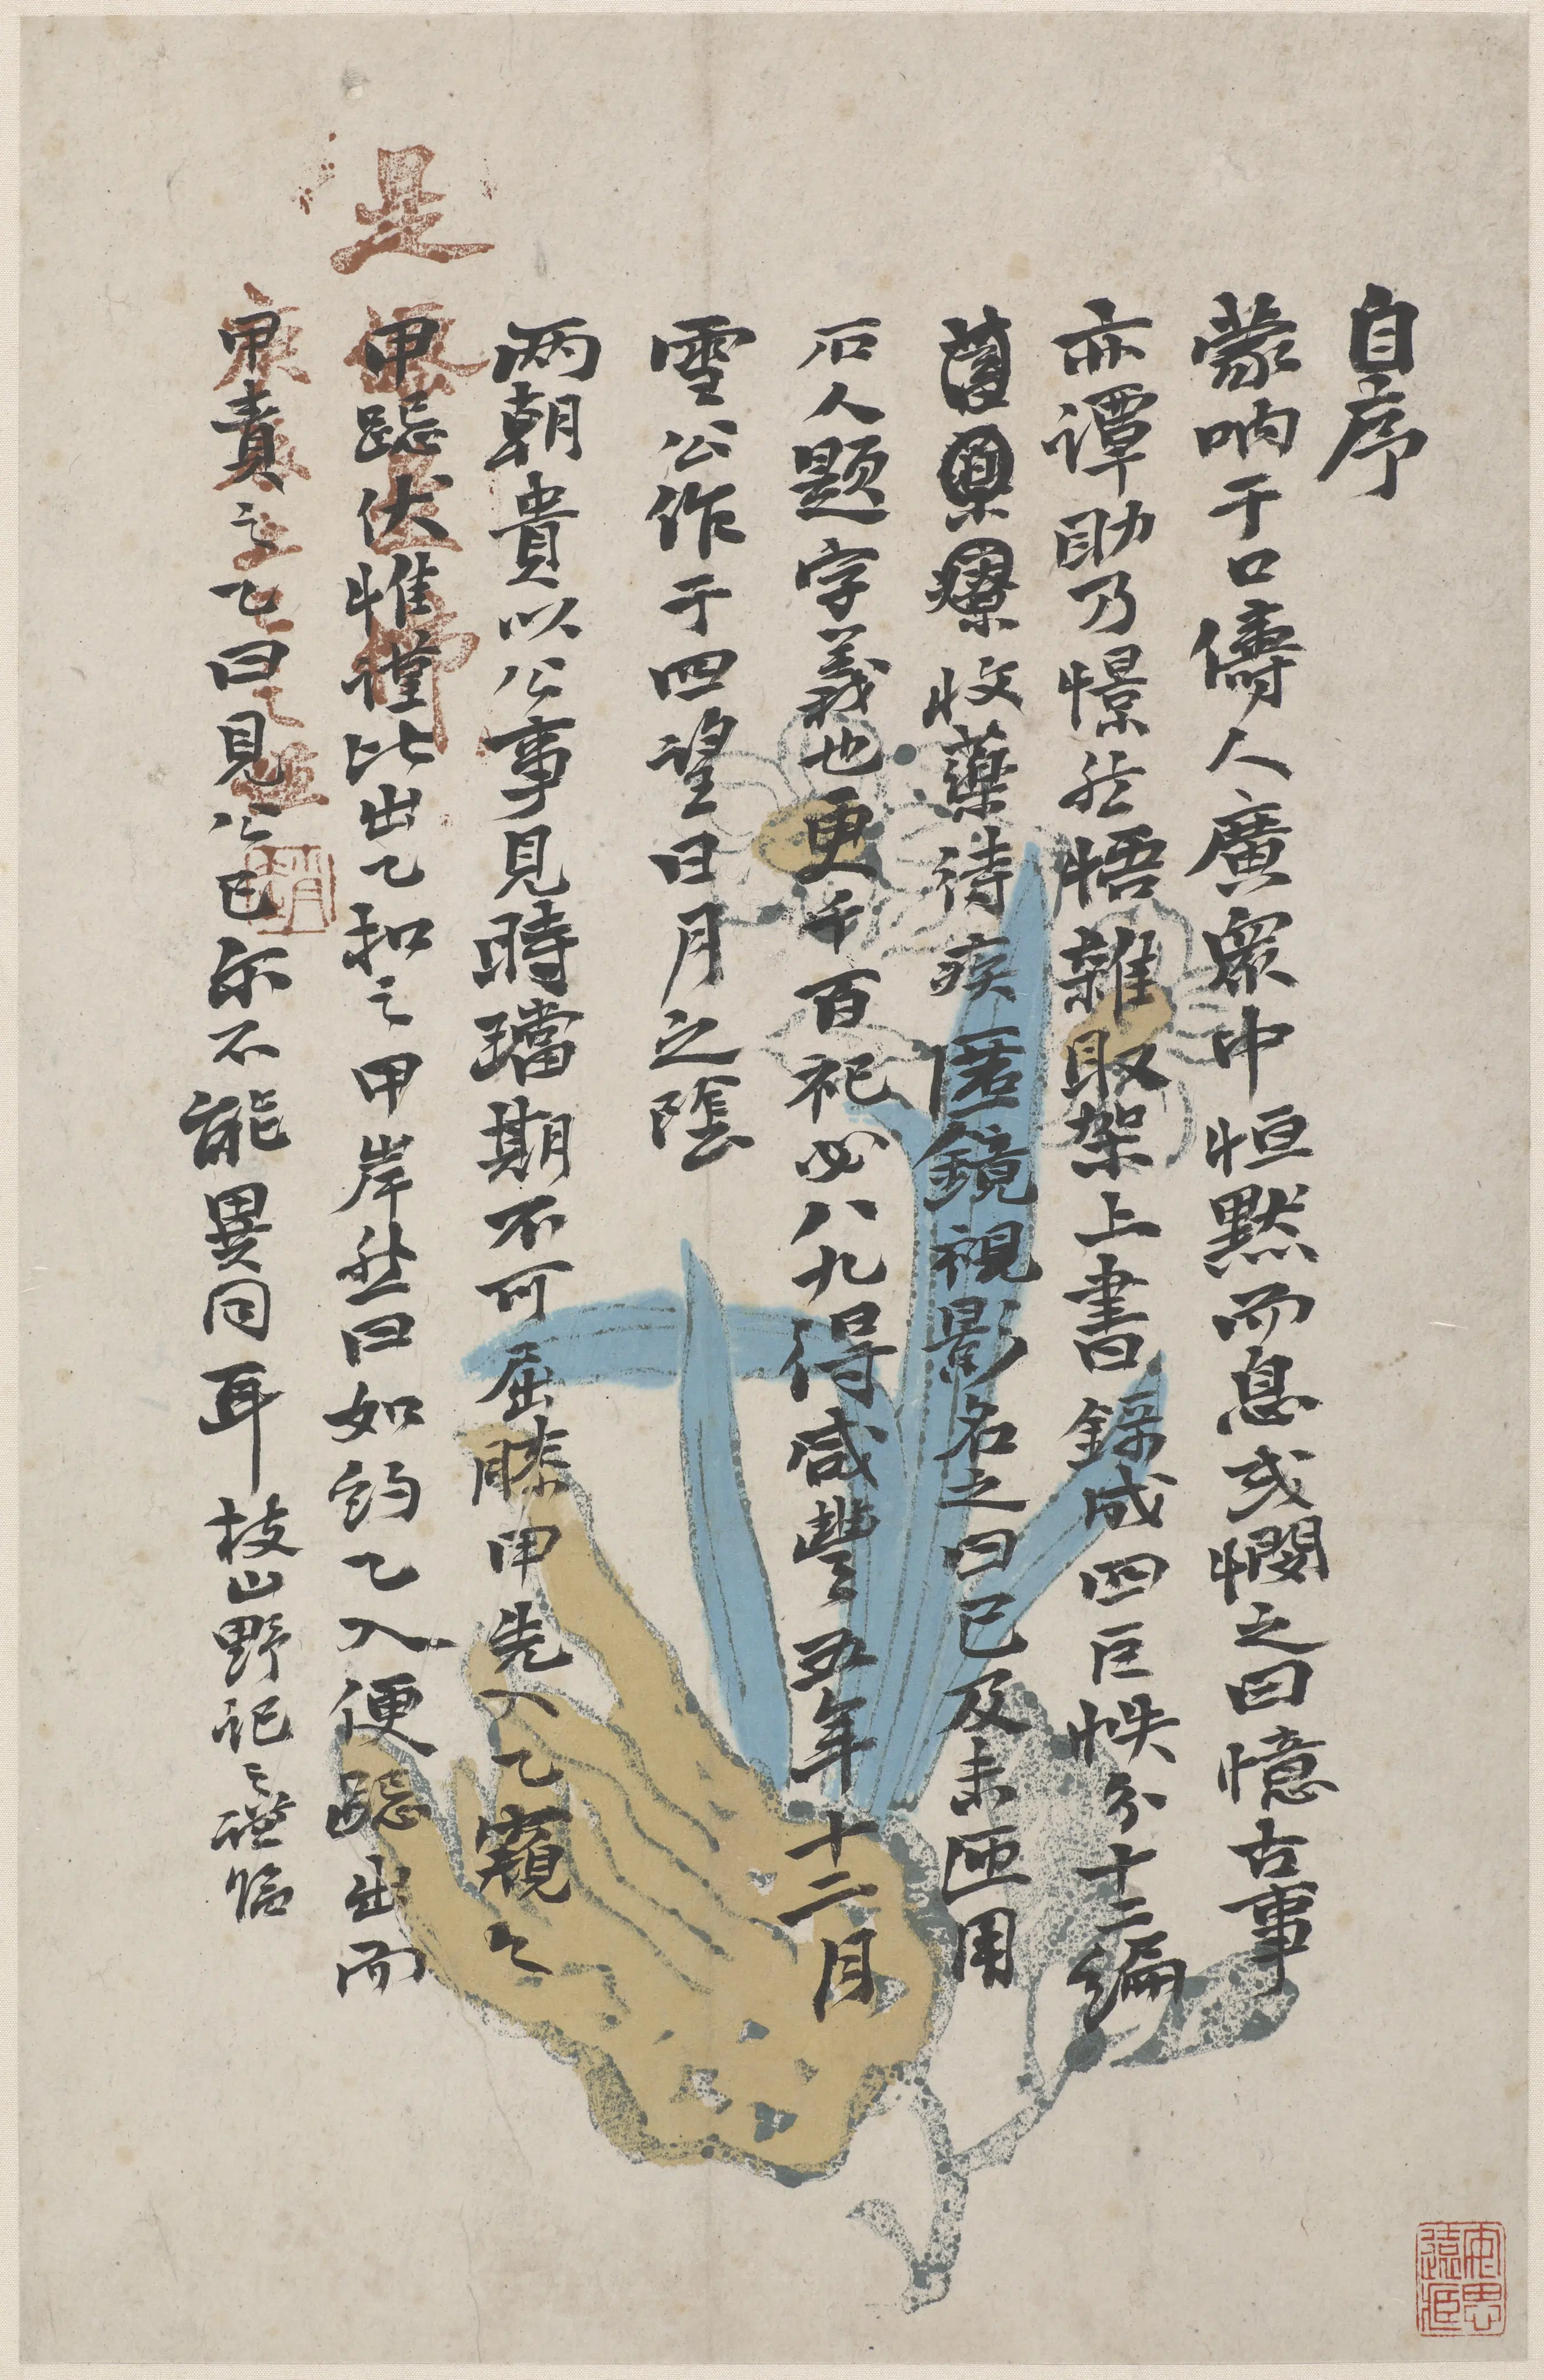 自序
蒙呐于口儔人廣眾中恒默而息或憪之曰憶古事
亦譚助乃憬然悟雜取架上書錄成四巨帙分十二編
收藥待疾匿鏡視影名之曰已及未匝用
石人題字義也更千百祀必八九得咸豐五年十二月
雪公作于四望日月之陰
兩朝貴以公事見時璫期不可屈膝甲先入乙窺之
甲跽伏惟謹比出乙扣之甲岸然曰如約乙入便跽出而
甲責之乙曰見公已尔不能異同耳 枝山野記
是